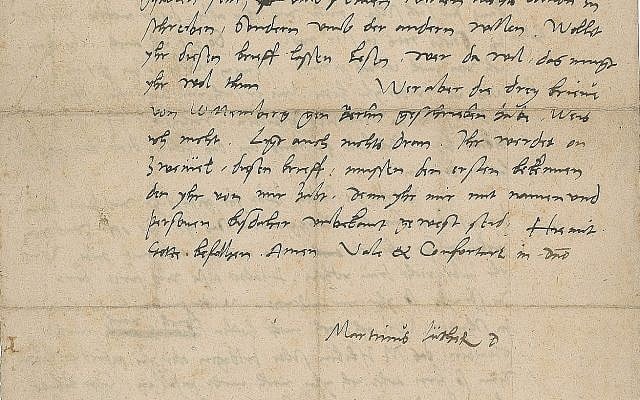 schreiben, sondern umb der andern willen. Wollet
yhr diesen brieff lassen lesen, wer da wil, das muget
yhr wol thun Wer aber die drey brieve
von Wittemberg gen Berlin geschrieben habe, Weis
ich nicht. Ligt auch nichts dran. Ihr werdet on
zweivel, diesen brieff, mussen den ersten bekennen
den yhr von mir habt. Denn yhr mir mit namen und
personen bisdaher unbekant gewest seid. Hiemit
Gotte befolhen. Amen Vale & Confortare in dno
Martinus Luther D